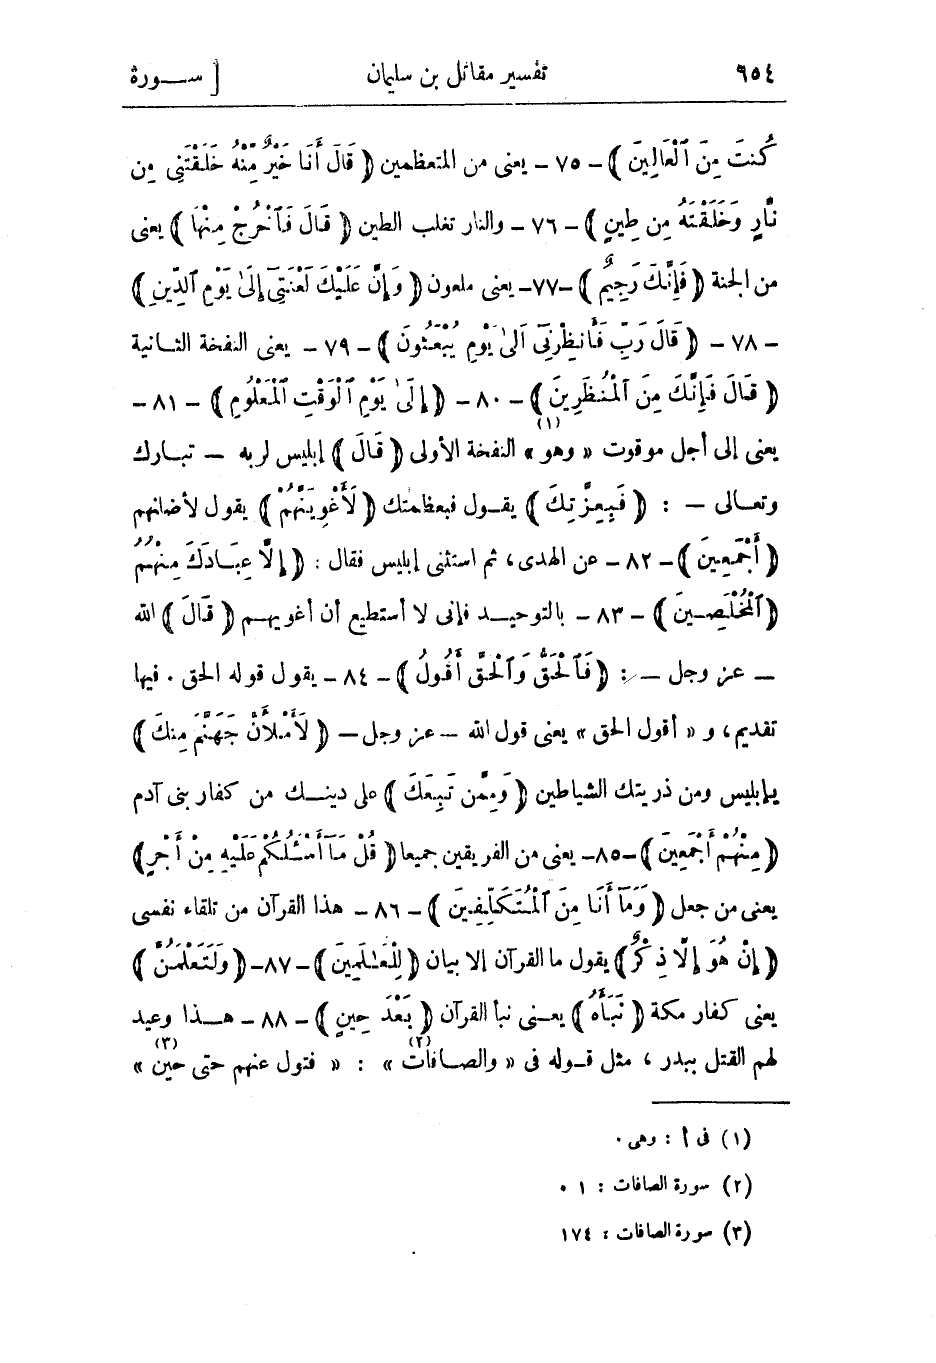 ٦٥٤ تفسير مقاتل بن سليمان [ ســورة
كُنتَ مِنَ ٱلْعَالِينَ ) - ٧٥ - يعنى من المتعظمين ( قَالَ أَنَا۠ خَيْرٌ مِّنْهُ خَلَقْتَنِى مِن
نَّارٍ وَخَلَقْتَهُ مِن طِينٍ ) - ٧٦ - والنار تغلب الطين ( قَالَ فَٱخْرُجْ مِنْهَا ) يعنى
من الجنة ( فَإِنَّكَ رَجِيمٌ ) -٧٧- يعنى ملعون ( وَإِنَّ عَلَيْكَ لَعْنَتِىٓ إِلَىٰ يَوْمِ ٱلدِّينِ )
- ٧٨ - ( قَالَ رَبِّ فَأَنظِرْنِىٓ إِلَىٰ يَوْمِ يُبْعَثُونَ ) - ٧٩ - يعنى النفخة الثـانية
( قَالَ فَإِنَّكَ مِنَ ٱلْمُنظَرِينَ ) - ٨٠ - ( إِلَىٰ يَوْمِ ٱلْوَقْتِ ٱلْمَعْلُومِ ) - ٨١ -
يعنى إلى أجل موقوت « وهو »(١) النفخة الأولى ( قَالَ ) إبليس لربه — تبـارك
وتعـالى — : ( فَبِعِزَّتِكَ ) يقـول فبعظمتك ( لَأُغْوِيَنَّهُمْ ) يقول لأضلنهم
( أَجْمَعِينَ ) - ٨٢ - عن الهدى، ثم استثنى إبليس فقال : ( إِلَّا عِبَادَكَ مِنْهُمُ
( ٱلْمُخْلَصِـينَ ) - ٨٣ - بالتوحيـد فإنى لا أستطيع أن أغويهـم ( قَالَ ) الله
— عز وجل — : ( فَٱلْحَقُّ وَٱلْحَقَّ أَقُولُ ) - ٨٤ - يقول قوله الحق . فيها
تقديم، و « أقول الحق » يعنى قول الله — عز وجل — ( لَأَمْلَأَنَّ جَهَنَّمَ مِنكَ )
يـإبليس ومن ذريتك الشياطين ( وَمِمَّن تَبِعَكَ ) على دينـك من كفار بنى آدم
( مِنْهُمْ أَجْمَعِينَ ) -٨٥- يعنى من الفريقين جميعا ( قُلْ مَآ أَسْـَٔلُكُمْ عَلَيْهِ مِنْ أَجْرٍ )
يعنى من جعل ( وَمَآ أَنَا۠ مِنَ ٱلْمُتَكَلِّفِـينَ ) - ٨٦ - هذا القرآن من تلقاء نفسى
( إِنْ هُوَ إِلَّا ذِكْرٌ ) يقول ما القرآن إلا بيان ( لِّلْعَـٰلَمِينَ ) -٨٧- ( وَلَتَعْلَمُنَّ )
يعنى كفار مكة ( نَبَأَهُ ) يعـنى نبأ القرآن ( بَعْدَ حِينٍ ) - ٨٨ - هـذا وعيد
لهم القتل ببدر ، مثل قـوله فى « والصـافات »(٢) : « فتول عنهم حتى حين »(٣)
(١) فى أ : وهى .
(٢) سورة الصافات : ١ .
(٣) سورة الصافات : ١٧٤